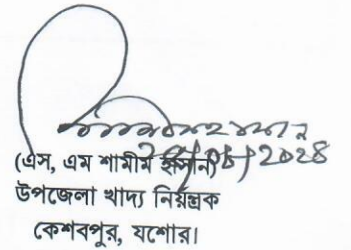 (এস, এম শামীম হাসান)
উপজেলা খাদ্য নিয়ন্ত্রক
কেশবপুর, যশোর।